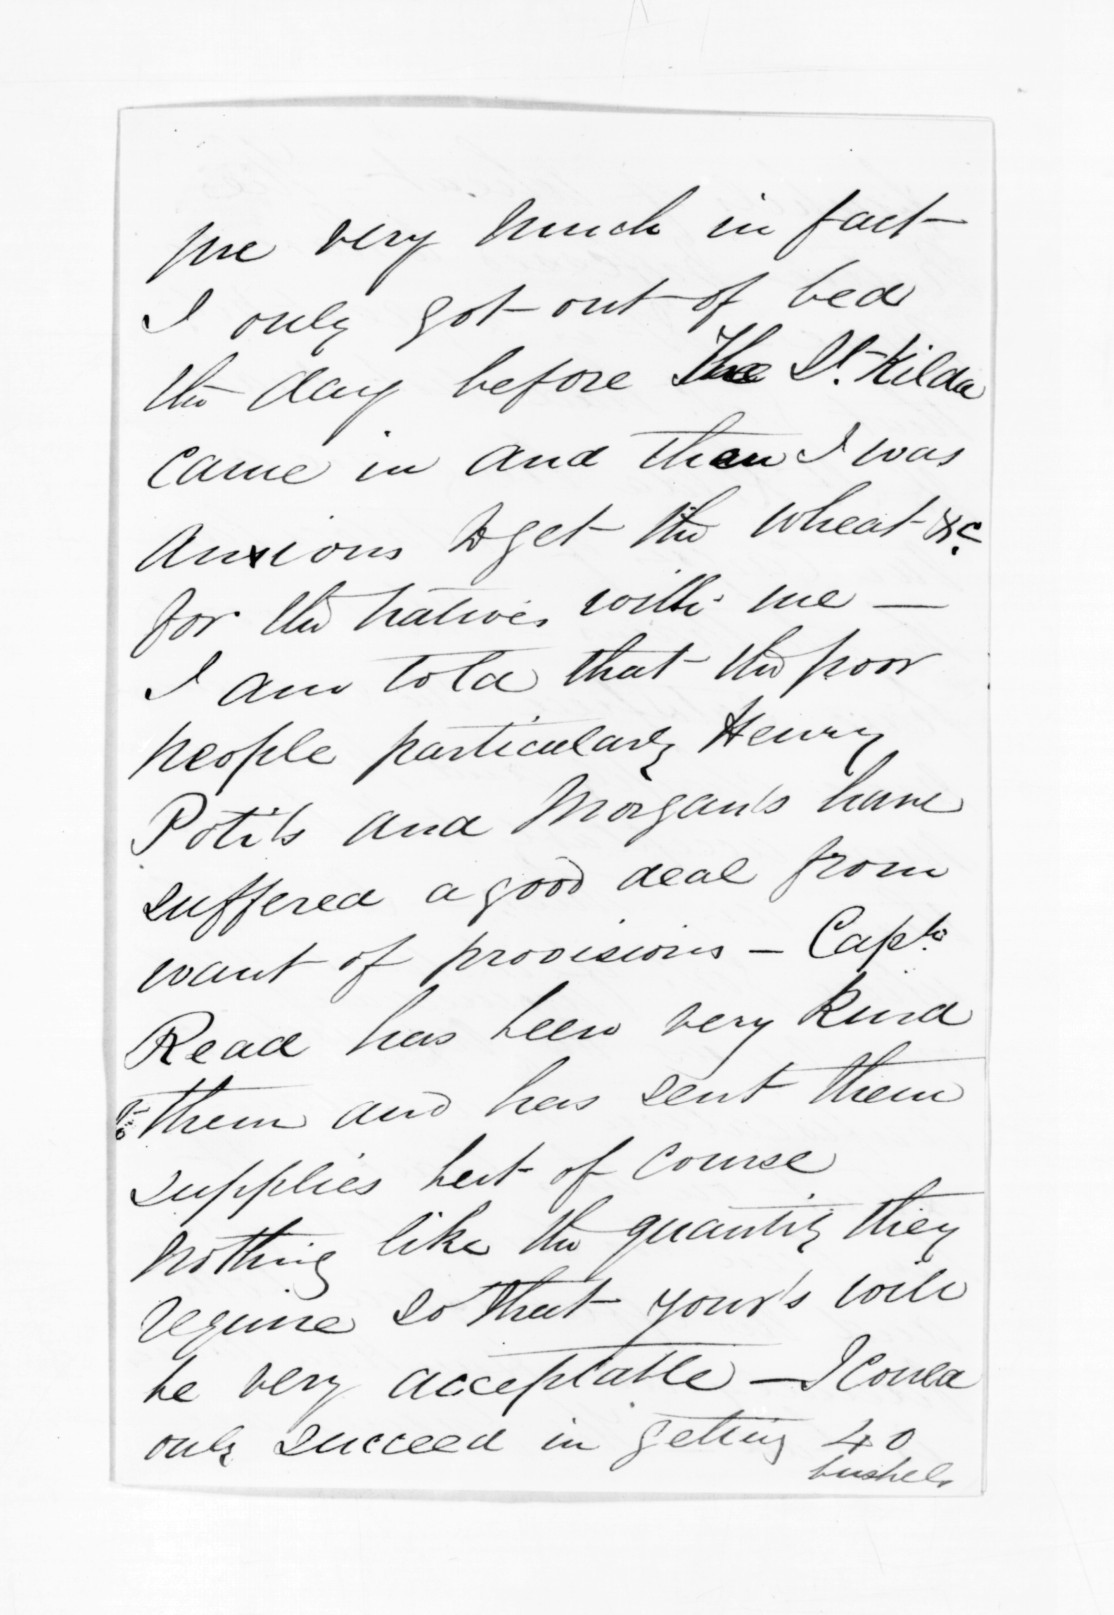 me very much in fact
I only got out of bed
the day before The St. Kilda
came in and then I was
anxious to get the wheat &c.
for the natives with me —
I am told that the poor
people particularly Henry
Poti's and Morgan's have
suffered a good deal from
want of provisions — Capt.
Read has been very kind
to them and has sent them
supplies but of course
nothing like the quantity they
require so that your's will
be very acceptable — I could
only succeed in getting 40
bushels